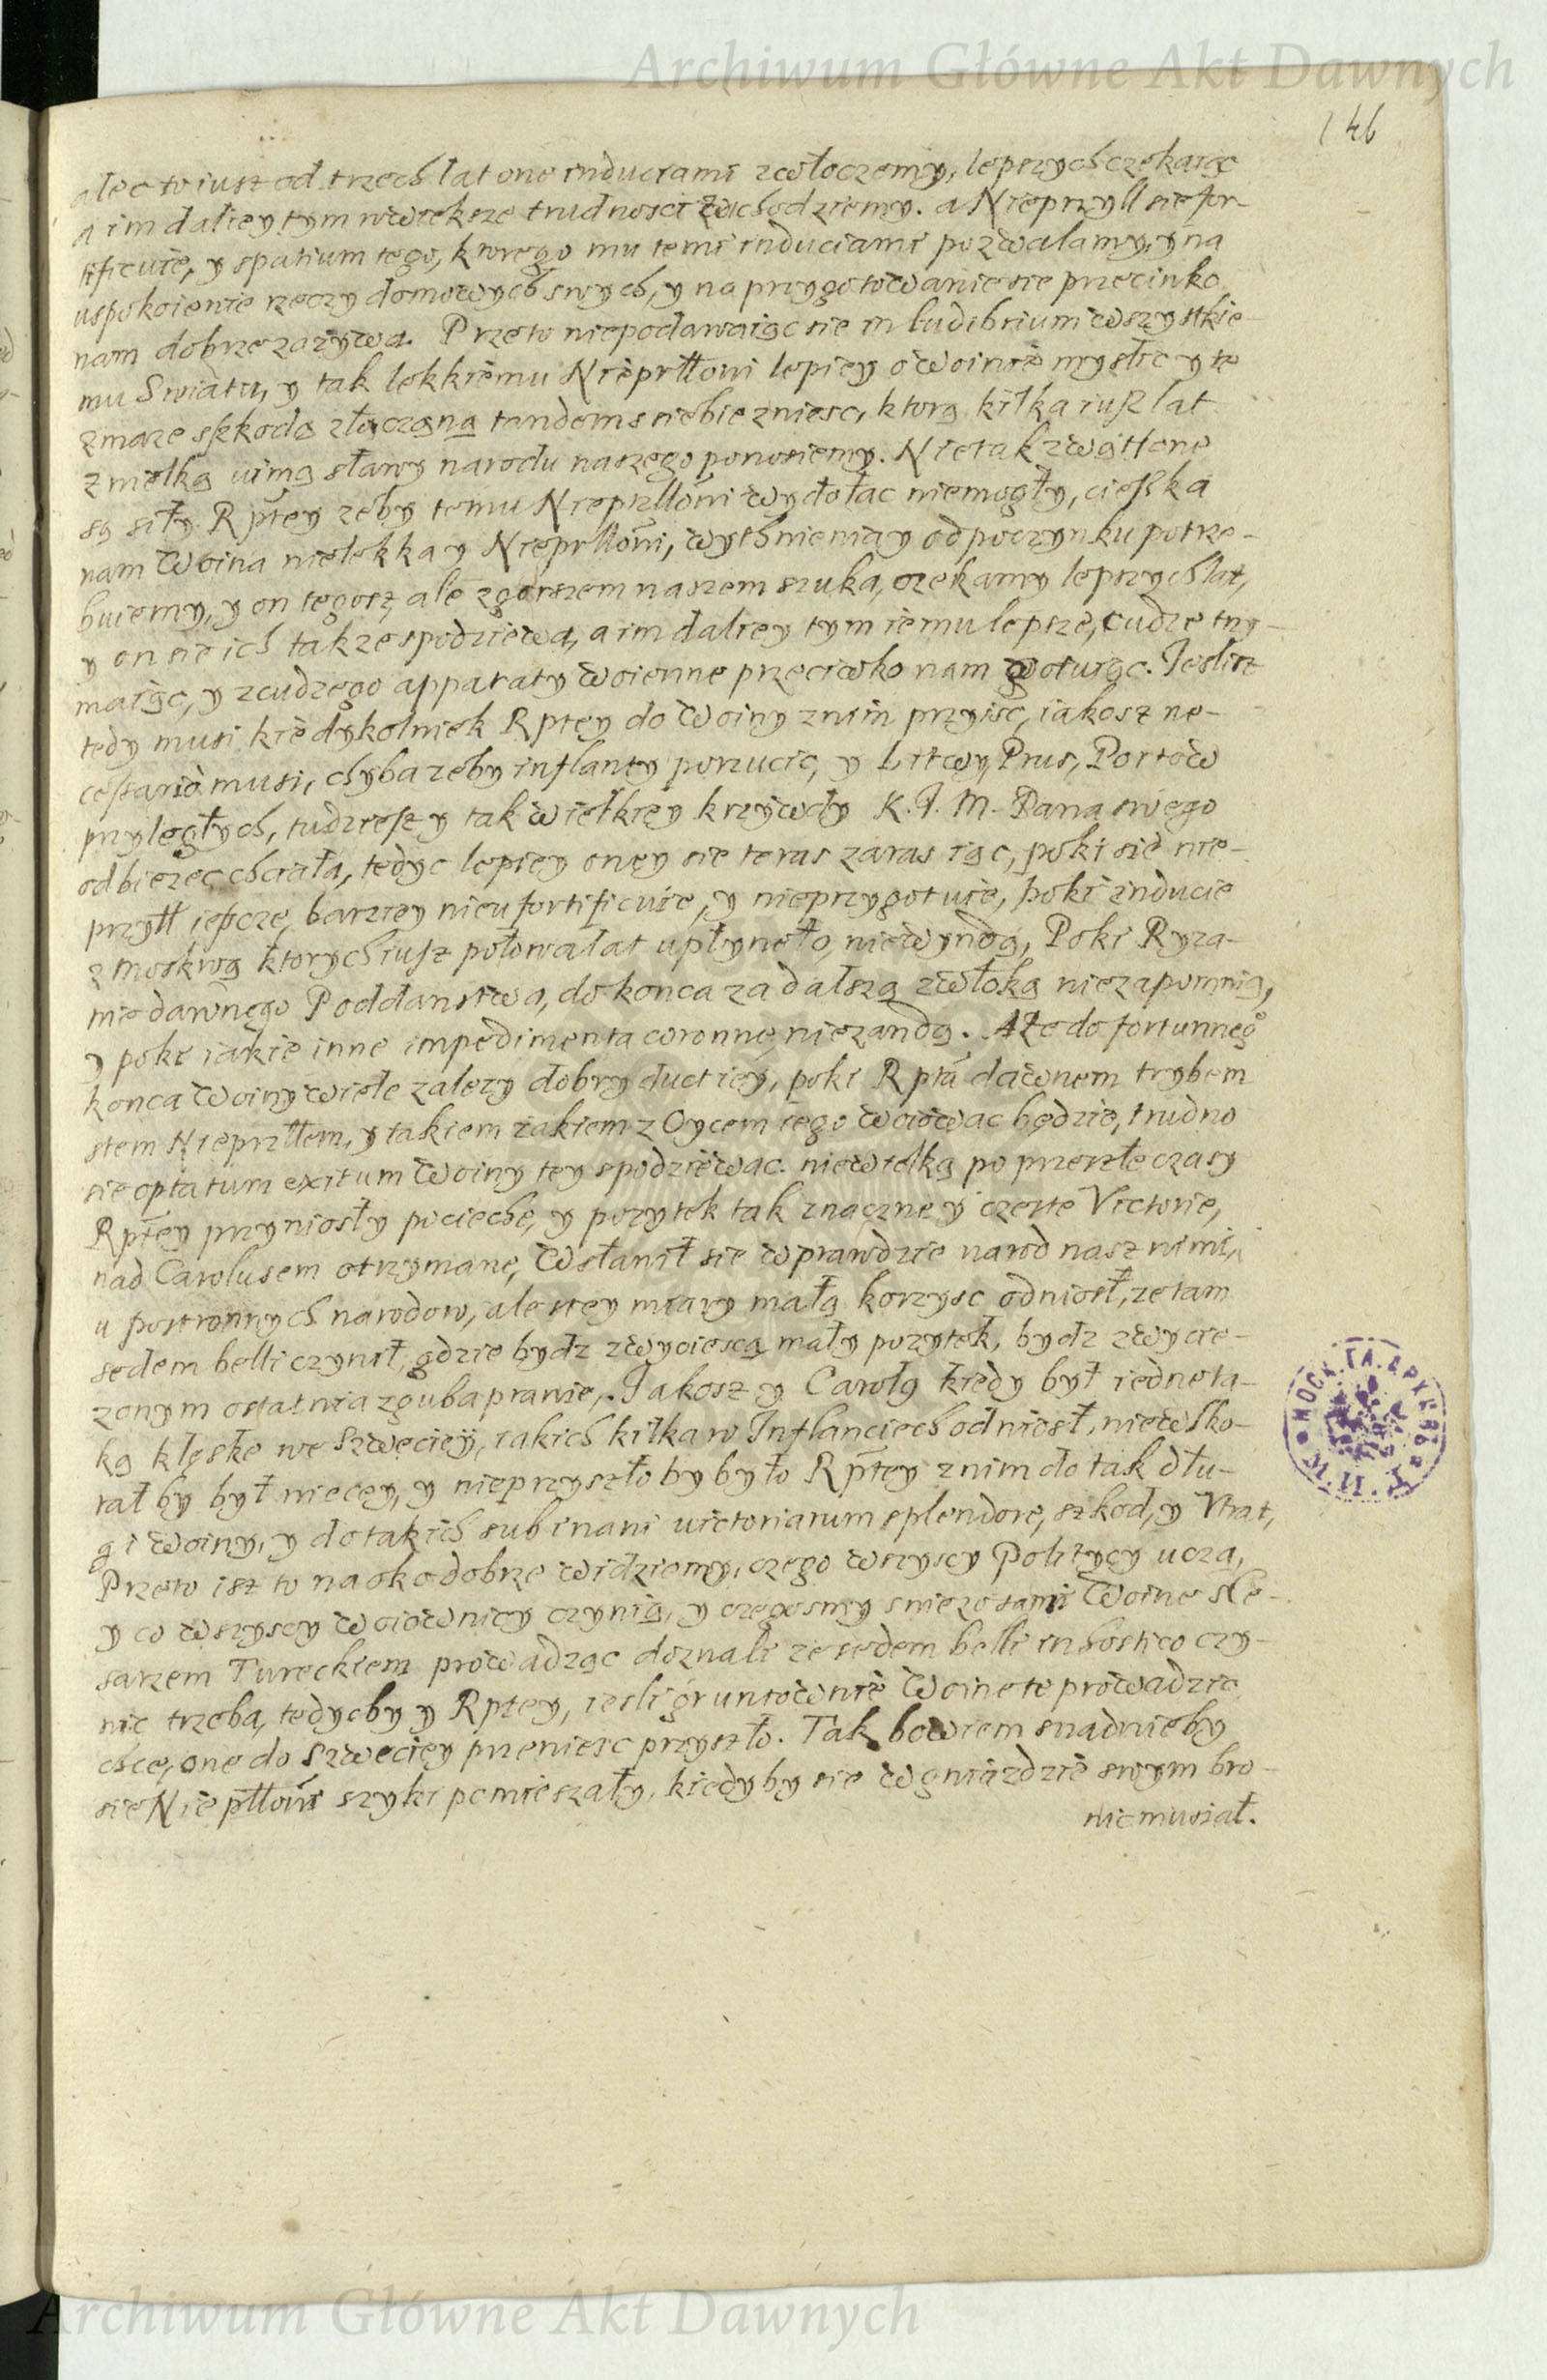 Archiwum Główne Akt Dawnych
146
alec to iusz od trzech lat one induciami zwłoczemy, lepszych czekaiąc
a im daliey tym wiwieksze trudnosci zachodziemy. a Nieprzyll sie for-
tificuie, y spatium tego, ktorego mu temi induciami pozwalamy, y na
uspokoienie rzeczy domowych swych, y na przygotowanie sie przecinko
nam dobrze zazywa. Przeto niepodawaiąc sie in ludibrium wszystkie-
mu Swiatu, y tak lekkiemu Nieprłłowi lepiey o woinie myslic y te
zmaze szkodą złączoną tandem s siebie zniesc, ktorą kilka iusz lat
z wielką uimą sławy narodu naszego ponosiemy. Nie tak zwątlone
są siły Rptey zeby temu Nieprzllowi wydołac niemogły, cieszka
nam woina nielekka y Nieprłłowi, wythnienia y odpoczynku potrze-
buiemy, y on tegosz, ale zgorszem naszem szuka, czekamy lepszych lat,
y on sie ich takze spodziewa, a im daliey tym iemu lepsze, cudze trzy-
maiąc, y z cudzego apparaty woienne przeciwko nam gotuiąc. Ieslisz
tedy musi kiedykolwiek Rptey do woiny znim przyisc, iakosz ne-
cessario musi, chyba zeby inflanty porzucic, y Litwy, Prus, Portow
przyległych, tudziesz y tak wielkiey krzywdy K. J. M. Pana swego
odbiezec chciała, tedyc lepiey oney sie teras zaras iąc, poki sie nie-
przyłł ieszcze barziey nieufortificuie, y nieprzygotuie, poki inducie
z Moskwą ktorych iusz połowa lat upłyneło, niewyndą, Poki Ryza-
nie dawnego Poddanstwa, do konca za dalszą zwłoką niezapomnią,
y poki iakie inne impedimenta coronne niezandą. Ale do fortunnego
konca woiny wiele zalezy dobry duct iey, poki Rpta dawnem trybem
stem Nieprzłłem, y takiem iakiem z Oycem iego woiowac będzie, trudno
sie optatum exitum woiny tey spodziewac. niewielką po przeszłe czasy
Rptey przyniosły pocieche, y pozytek tak znaczne y czeste Victorie,
nad Carolusem otrzymane, Wsławił sie wprawdzie narod nasz nimi,
u postronnych narodow, ale stey miary małą korzysc odniosł, ze tam
sedem belli czynił, gdzie bydz zwyciescą mały pozytek, bydz zwycie-
zonym ostatnia zguba prawie. Iakosz y Carolg kiedy był iedne ta-
ką klęske we Szweciey, iakich kilka w Inflanciech odniosł, niewsko-
rał by był wiecey, y nieprzyszło by było Rptey znim do tak dłu-
gi woiny, y do takich sub inani victoriarum splendore, szkod, y Utrat,
Przeto isz to na oko dobrze widziemy, czego wszyscy Politycy uczą,
y co wszyscy woiownicy czynią, y czegosmy smiezo sami Woine s Ce-
sarzem Tureckiem prowadząc doznali ze sedem belli in hostico czy-
nic trzeba, tedyćby y Rptey, iesli gruntownie Woine te prowadzic
chce, one do Szweciey przeniesc przyszło. Tak bowiem snadnieby
sie Nieptłowi szyki pomieszały, kiedyby sie w gniazdzie swym bro-
nic musiał.
Archiwum Główne Akt Dawnych